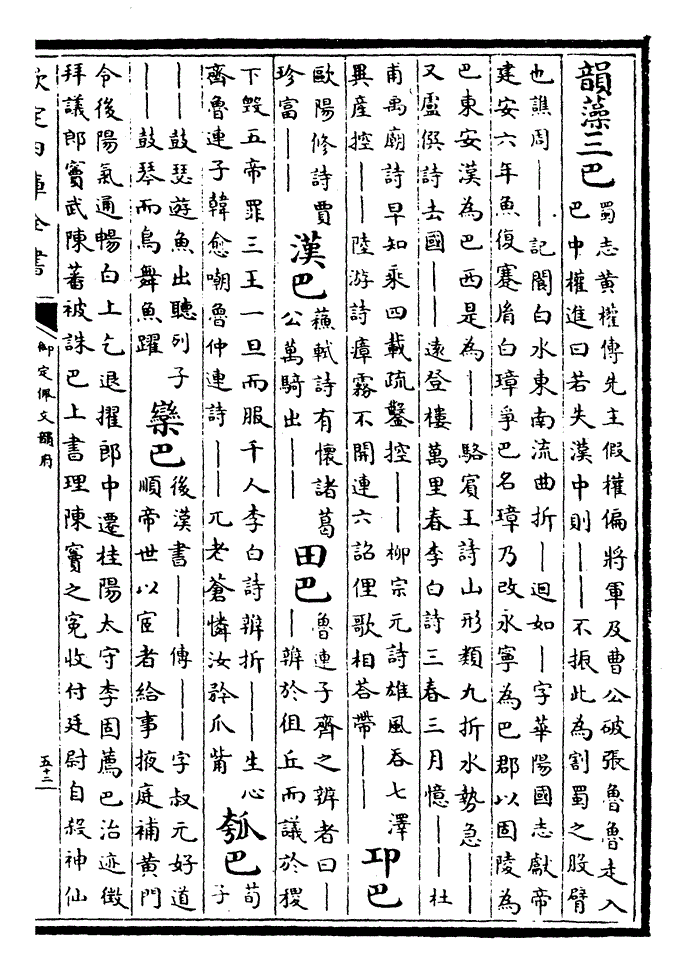 韻藻三巴
蜀志黄權傳先主假權偏將軍及曹公破張魯魯走入
巴中權進曰若失漢中則——不振此為割蜀之股臂
也譙周——記閬白水東南流曲折——迴如—字華陽國志獻帝
建安六年魚復蹇胤白璋爭巴名璋乃改永寧為巴郡以固陵為
巴東安漢為巴西是為——駱賓王詩山形類九折水勢急——
又盧僎詩去國——遠登樓萬里春李白詩三春三月憶——杜
甫禹廟詩早知乘四載疏鑿控——柳宗元詩雄風吞七澤
異産控——陸游詩瘴霧不開連六詔俚歌相答帶——
卭巴
歐陽修詩賈
珍富——
漢巴
蘇軾詩有懷諸葛
公萬騎出——
田巴
魯連子齊之辨者曰—
—辨於徂丘而議於稷
下毁五帝罪三王一旦而服千人李白詩辨折——生心
齊魯連子韓愈嘲魯仲連詩——兀老蒼憐汝矜爪觜
瓠巴
荀
子
——鼓瑟遊魚出聽列子
——鼓琴而鳥舞魚躍
欒巴
後漢書——傳——字叔元好道
順帝世以宦者給事掖庭補黄門
令後陽氣通暢白上乞退擢郎中遷桂陽太守李固薦巴治迹徴
拜議郎竇武陳蕃被誅巴上書理陳竇之寃收付廷尉自殺神仙
欽定四庫全書
御定佩文韻府
五十三